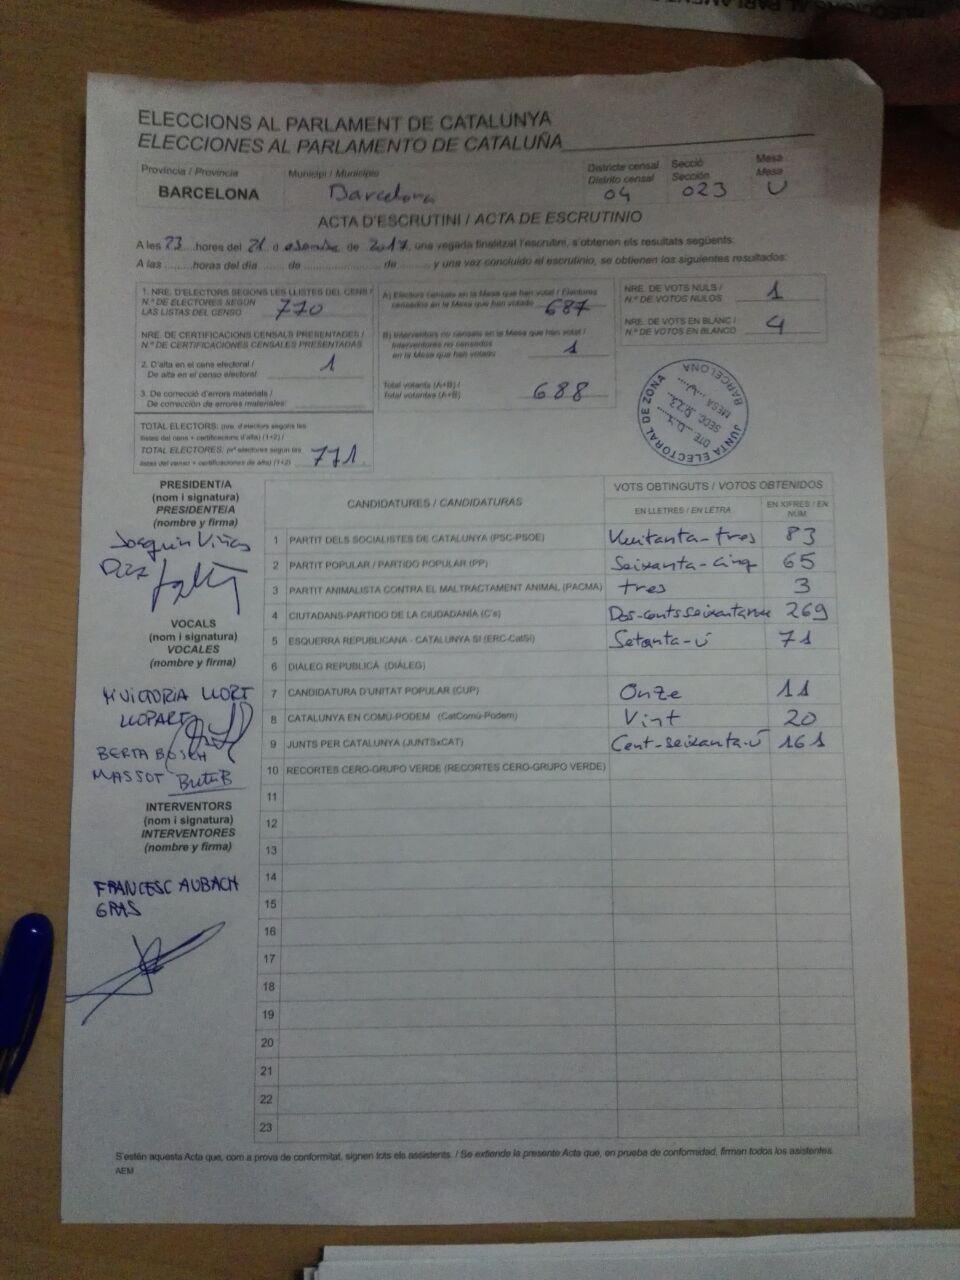 ELECCIONS AL PARLAMENT DE CATALUNYA
ELECCIONES AL PARLAMENTO DE CATALUÑA
Província / Provincia
BARCELONA
Municipi / Municipio
Barcelona
Districte censal
Distrito censal
04
Secció
Sección
023
Mesa
Mesa
U
ACTA D'ESCRUTINI / ACTA DE ESCRUTINIO
A les 23 hores del 21 d de 2017, una vegada finalitzat l'escrutini, s'obtenen els resultats següents:
A las ........ horas del día ...... de .................... de ........ y una vez concluido el escrutinio, se obtienen los siguientes resultados:
1. NRE. D'ELECTORS SEGONS LES LLISTES DEL CENS /
N.º DE ELECTORES SEGÚN
LAS LISTAS DEL CENSO 770
NRE. DE CERTIFICACIONS CENSALS PRESENTADES /
N.º DE CERTIFICACIONES CENSALES PRESENTADAS
2. D'alta en el cens electoral /
De alta en el censo electoral: 1
3. De correcció d'errors materials /
De corrección de errores materiales:
TOTAL ELECTORS: (nre. d'electors segons les
llistes del cens + certificacions d'alta) (1+2) /
TOTAL ELECTORES: (nº electores según las
listas del censo + certificaciones de alta) (1+2) 771
A) Electors censats en la Mesa que han votat / Electores
censados en la Mesa que han votado 687
B) Interventors no censats en la Mesa que han votat /
Interventores no censados
en la Mesa que han votado 1
Total votants (A+B) /
Total votantes (A+B) 688
NRE. DE VOTS NULS /
N.º DE VOTOS NULOS 1
NRE. DE VOTS EN BLANC /
N.º DE VOTOS EN BLANCO 4
JUNTA ELECTORAL DE ZONA
BARCELONA
DTE. 04
SECC. 023
MESA U
PRESIDENT/A
(nom i signatura)
PRESIDENTE/A
(nombre y firma)
Joaquin Viñas
VOCALS
(nom i signatura)
VOCALES
(nombre y firma)
M VICTORIA LLORT
LLOPART
BERTA BOSCH
MASSOT
INTERVENTORS
(nom i signatura)
INTERVENTORES
(nombre y firma)
FRANCESC AUBACH
GRAS
CANDIDATURES / CANDIDATURAS
VOTS OBTINGUTS / VOTOS OBTENIDOS
EN LLETRES / EN LETRA
EN XIFRES / EN NÚM.
1 PARTIT DELS SOCIALISTES DE CATALUNYA (PSC-PSOE) Vuitanta-tres 83
2 PARTIT POPULAR / PARTIDO POPULAR (PP) Seixanta-cinq 65
3 PARTIT ANIMALISTA CONTRA EL MALTRACTAMENT ANIMAL (PACMA) tres 3
4 CIUTADANS-PARTIDO DE LA CIUDADANÍA (C's) Dos-cents seixanta nou 269
5 ESQUERRA REPUBLICANA - CATALUNYA SÍ (ERC-CatSí) Setanta-ú 71
6 DIÀLEG REPUBLICÀ (DIÀLEG)
7 CANDIDATURA D'UNITAT POPULAR (CUP) Onze 11
8 CATALUNYA EN COMÚ-PODEM (CatComú-Podem) Vint 20
9 JUNTS PER CATALUNYA (JUNTSxCAT) Cent-seixanta-ú 161
10 RECORTES CERO-GRUPO VERDE (RECORTES CERO-GRUPO VERDE)
11
12
13
14
15
16
17
18
19
20
21
22
23
S'estén aquesta Acta que, com a prova de conformitat, signen tots els assistents. / Se extiende la presente Acta que, en prueba de conformidad, firman todos los asistentes.
AEM